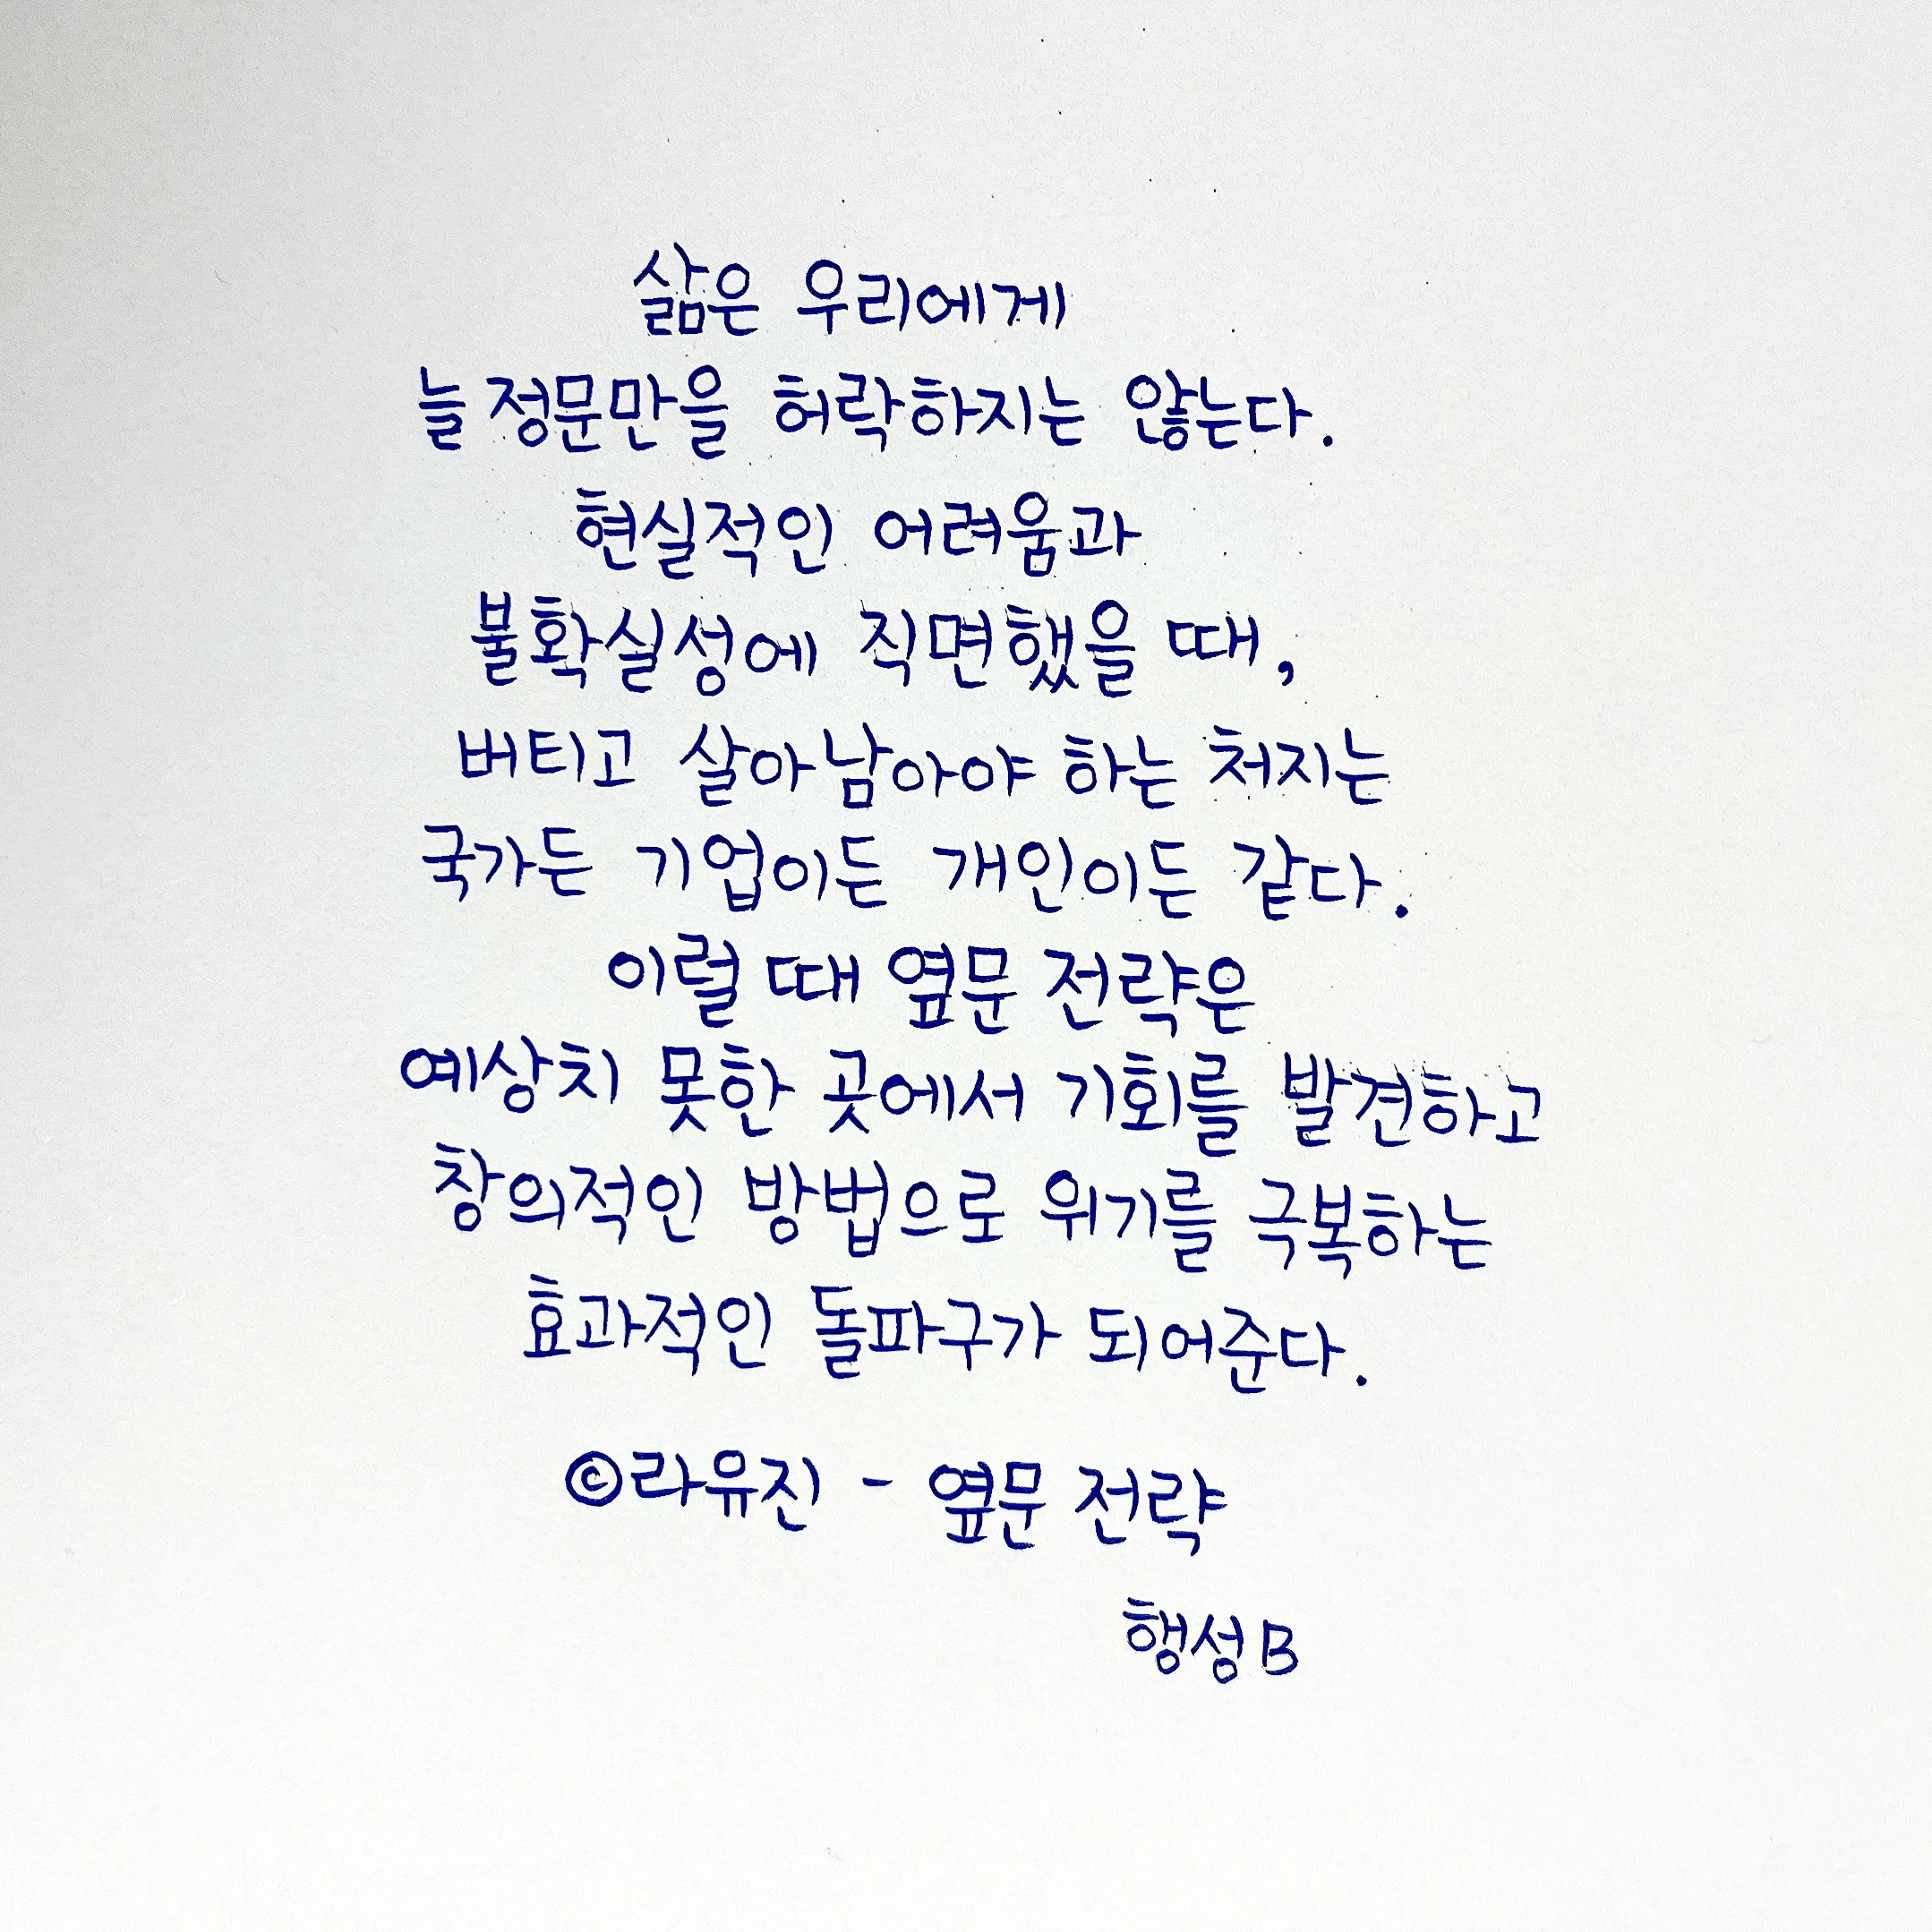 삶은 우리에게
늘 정문만을 허락하지는 않는다.
현실적인 어려움과
불확실성에 직면했을 때,
버티고 살아남아야 하는 처지는
국가든 기업이든 개인이든 같다.
이럴 때 옆문 전략은
예상치 못한 곳에서 기회를 발견하고
창의적인 방법으로 위기를 극복하는
효과적인 돌파구가 되어준다.
©라유진 - 옆문 전략
행성B